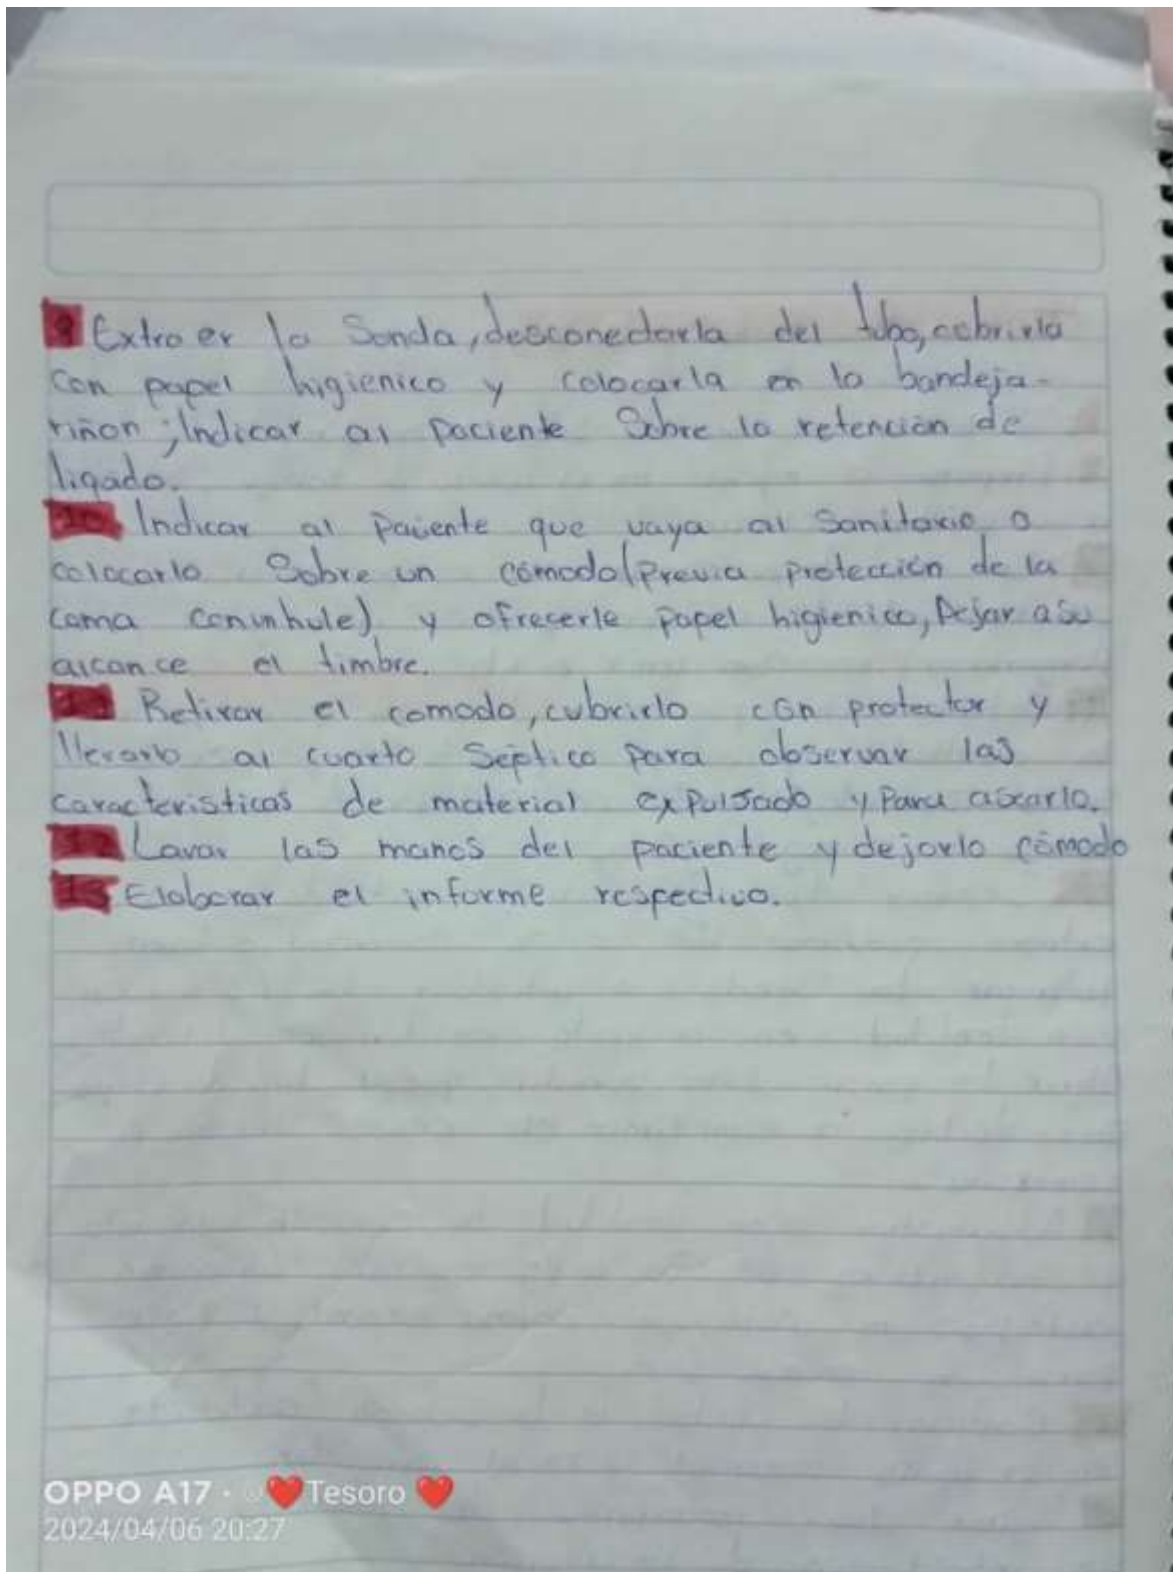 9 Extraer la Sonda, desconectarla del tubo, cubrirla
con papel higienico y colocarla en la bandeja-
riñon; Indicar al paciente Sobre la retención de
liqado.
10 Indicar al paciente que vaya al Sanitario o
colocarlo Sobre un cómodo (Previa protección de la
cama con un hule) y ofrecerle papel higienico, Dejar a su
alcance el timbre.
Retirar el comodo, cubrirlo con protector y
llevarlo al cuarto Septico para observar las
caracteristicas de material expulsado y Para asearlo.
Lavar las manos del paciente y dejarlo cómodo
13 Elaborar el informe respectivo.
OPPO A17 · ❤️Tesoro ❤️
2024/04/06 20:27